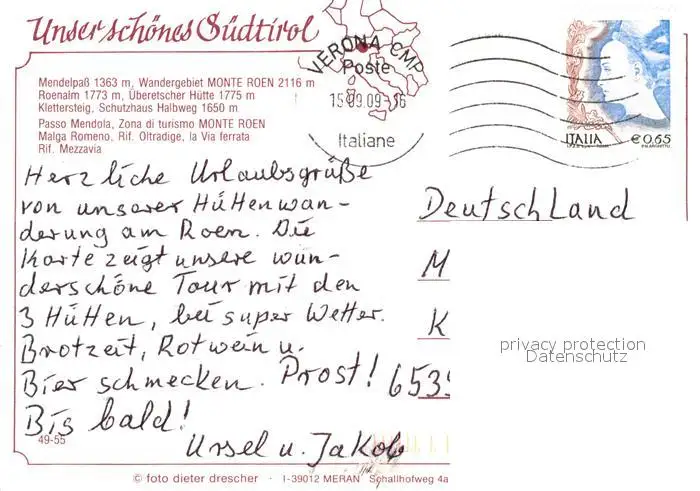 Unser schönes Südtirol
Mendelpaß 1363 m, Wandergebiet MONTE ROEN 2116 m
Roenalm 1773 m, Überetscher Hütte 1775 m
Klettersteig, Schutzhaus Halbweg 1650 m
Passo Mendola, Zona di turismo MONTE ROEN
Malga Romeno, Rif. Oltradige, la Via ferrata
Rif. Mezzavia
VERONA CMP
Poste
15.09.09-16
Italiane
ITALIA €0,65
Herzliche Urlaubsgrüße
von unserer Hüttenwan-
derung am Roen. Die
Karte zeigt unsere wun-
derschöne Tour mit den
3 Hütten, bei super Wetter.
Brotzeit, Rotwein u.
Bier schmecken. Prost!
Bis bald!
Ursel u. Jakob
Deutschland
M
K
6535
privacy protection
Datenschutz
49-55
© foto dieter drescher · I-39012 MERAN Schallhofweg 4a